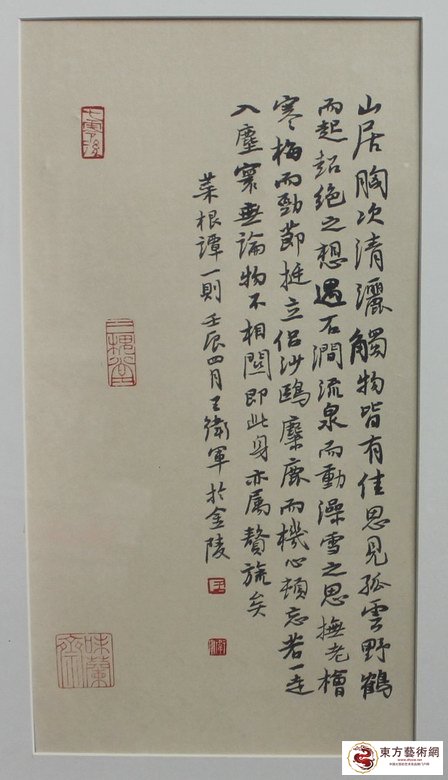 山居胸次清灑觸物皆有佳思見孤雲野鶴
而起超絕之想遇石澗流泉而動澡雪之思撫老檜
寒梅而勁節挺立侶沙鷗麋鹿而機心頓忘若一走
入塵寰無論物不相關即此身亦属贅旒矣
菜根谭一則 壬辰四月王衛軍於金陵
王
七零後
三槐堂
味蘭齋
東方藝術網